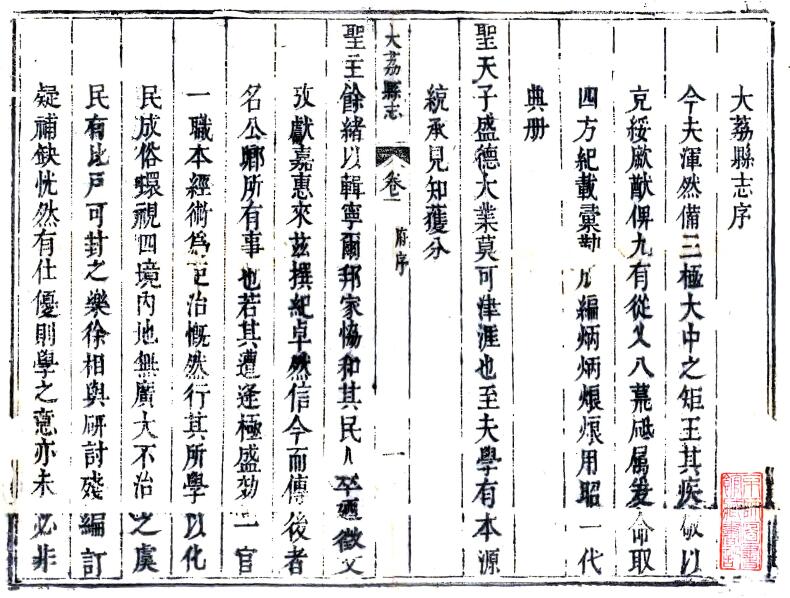 大荔縣志序
今夫渾然備三極大中之矩王其疾敬以
克綏厥猷俾九有從乂八荒砥属爰命取
四方紀載彙勒成編炳炳烺烺用昭一代
典册
聖天子盛德大業莫可津涯也至夫學有本源
統承見知獲分
大荔縣志 卷一 府序 一
聖主餘緒以輯寧爾邦家恊和其民人卒廼徵文
攷獻嘉惠來茲撰紀卓然信今而傳後者
名公卿所有事也若其遭逢極盛効一官
一職本經術為吏治慨然行其所學以化
民成俗環視四境内地無廣大不治之虞
民有比戸可封之樂徐相與研討殘編訂
疑補缺恍然有仕優則學之意亦未必非